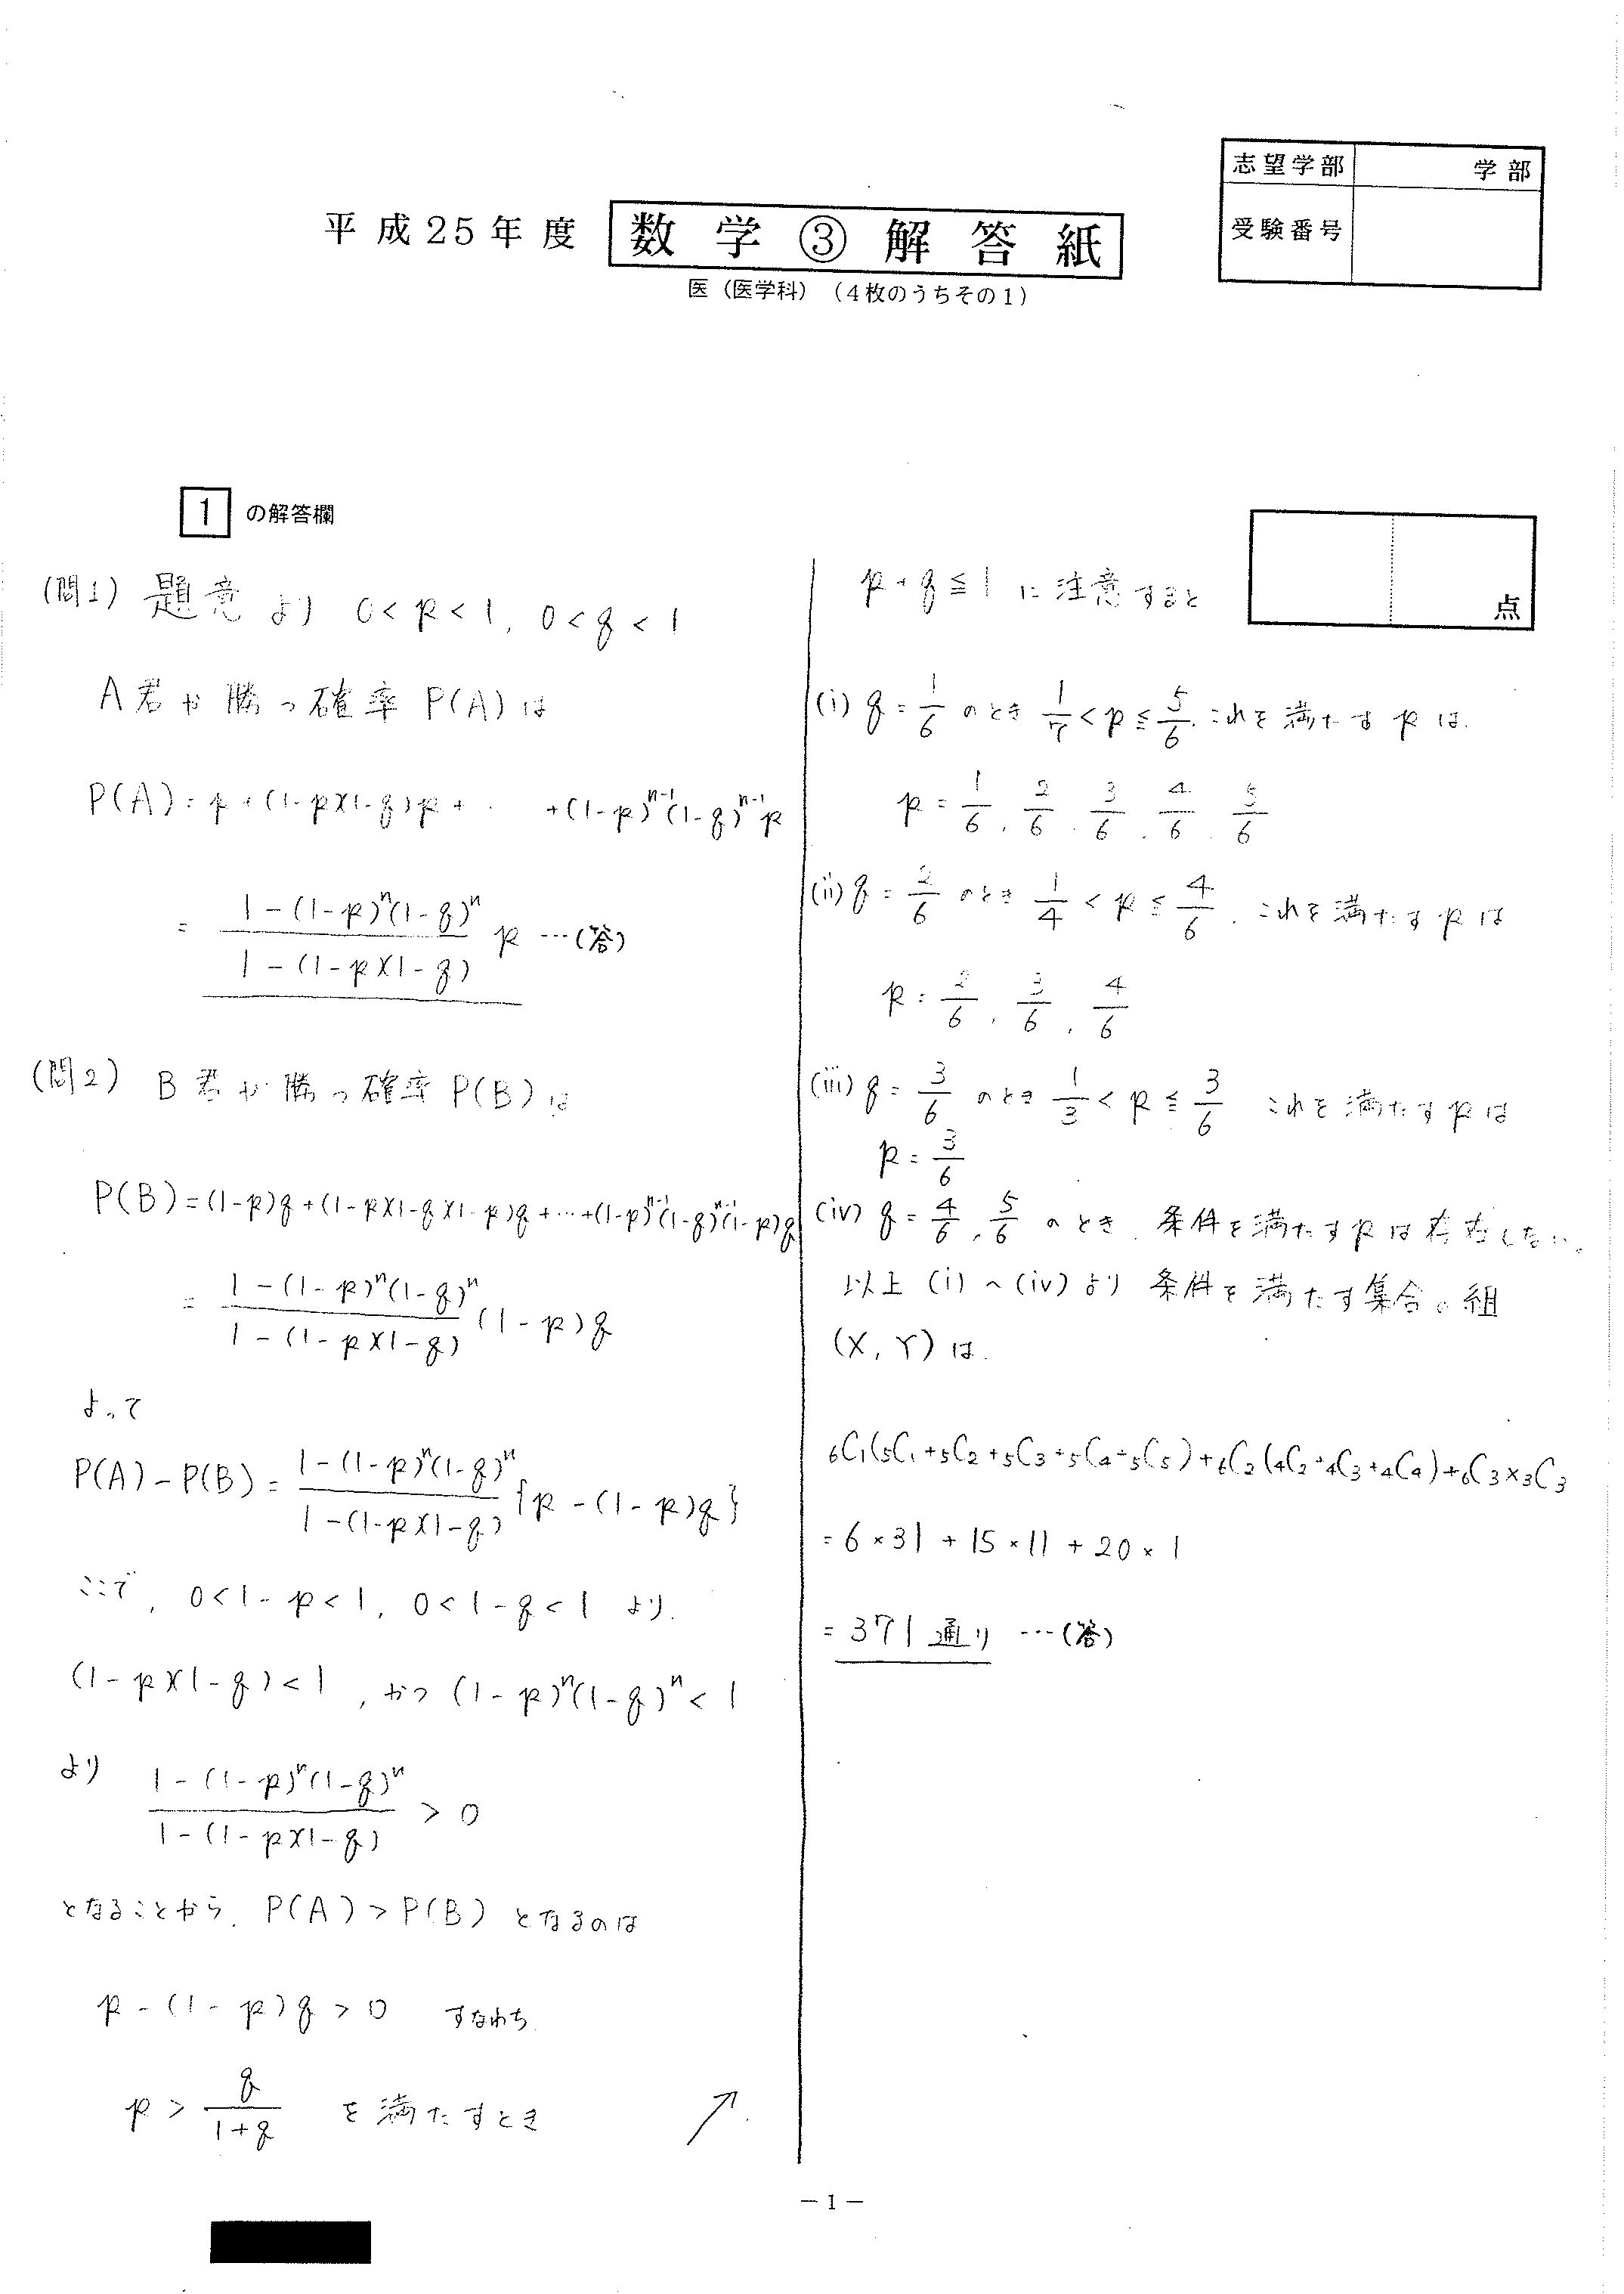 平成25年度 数学③解答紙
医（医学科）（4枚のうちその1）
志望学部 学部
受験番号
1 の解答欄
点
(問1) 題意より 0<p<1, 0<q<1
A君が勝つ確率 P(A)は
P(A)=p+(1-p)(1-q)p+‥+(1-p)^{n-1}(1-q)^{n-1}p
= \frac{1-(1-p)^n(1-q)^n}{1-(1-p)(1-q)} p …(答)
(問2) B君が勝つ確率 P(B)は
P(B)=(1-p)q+(1-p)(1-q)(1-p)q+…+(1-p)^{n-1}(1-q)^{n-1}(1-p)q
= \frac{1-(1-p)^n(1-q)^n}{1-(1-p)(1-q)} (1-p)q
よって
P(A)-P(B)= \frac{1-(1-p)^n(1-q)^n}{1-(1-p)(1-q)} {p-(1-p)q}
ここで, 0<1-p<1, 0<1-q<1 より.
(1-p)(1-q)<1, かつ (1-p)^n(1-q)^n<1
より \frac{1-(1-p)^n(1-q)^n}{1-(1-p)(1-q)} > 0
となることから, P(A)>P(B) となるのは
p-(1-p)q>0 すなわち
p> \frac{q}{1+q} を満たすとき ↗
p+q≦1 に注意すると
(i) q=\frac{1}{6} のとき \frac{1}{7}<p≦\frac{5}{6}. これを満たす p は.
p=\frac{1}{6}, \frac{2}{6}, \frac{3}{6}, \frac{4}{6}, \frac{5}{6}
(ii) q=\frac{2}{6} のとき \frac{1}{4}<p≦\frac{4}{6}. これを満たす p は
p=\frac{2}{6}, \frac{3}{6}, \frac{4}{6}
(iii) q=\frac{3}{6} のとき \frac{1}{3}<p≦\frac{3}{6} これを満たす p は
p=\frac{3}{6}
(iv) q=\frac{4}{6}, \frac{5}{6} のとき, 条件を満たす p は存在しない。
以上 (i)~(iv) より 条件を満たす集合の組
(X, Y) は.
₆C₁(₅C₁+₅C₂+₅C₃+₅C₄+₅C₅)+₆C₂(₄C₂+₄C₃+₄C₄)+₆C₃×₃C₃
=6×31+15×11+20×1
=371通り …(答)
— 1 —